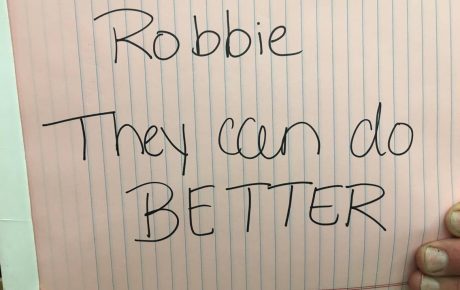 Robbie
They can do
BETTER